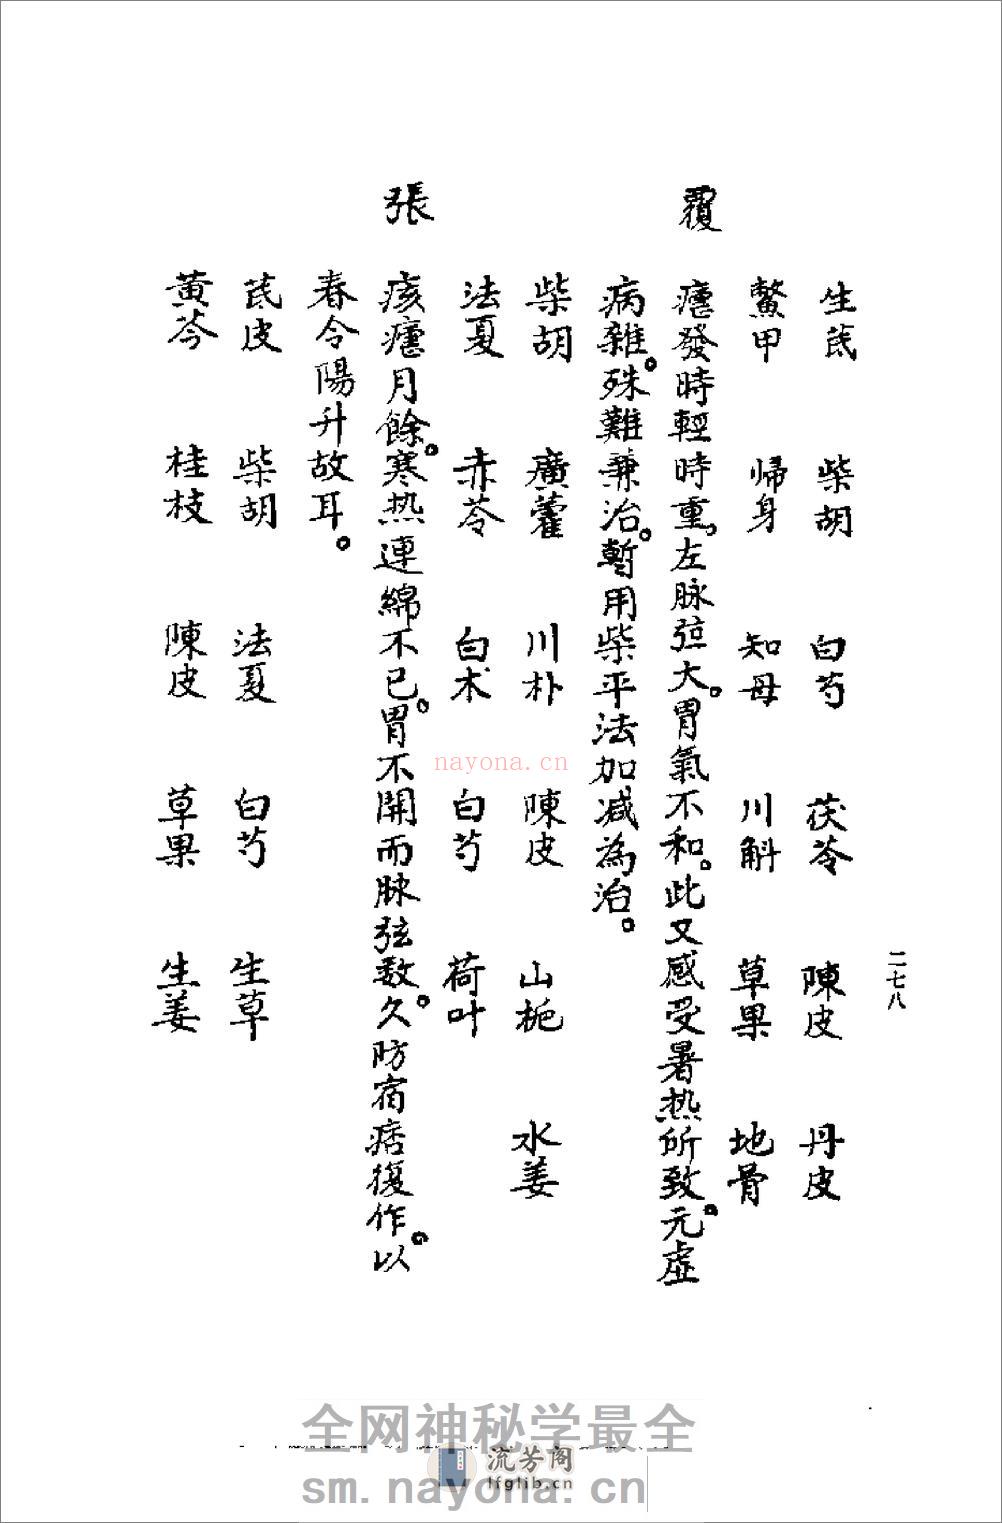 生芪 柴胡 白芍 茯苓 陳皮 丹皮
鱉甲 歸身 知母 川斛 草果 地骨
覆 瘧發時輕時重，左脉弦大。胃氣不和。此又感受暑热所致。元虛
病雜。殊難兼治。暫用柴平法加减為治。
柴胡 廣藿 川朴 陳皮 山栀 水姜
法夏 赤苓 白术 白芍 荷叶
張 痎瘧月餘。寒热連綿不已。胃不開而脉弦数。久防宿痞復作。以
春令陽升故耳。
芪皮 柴胡 法夏 白芍 生草
黄芩 桂枝 陳皮 草果 生姜
二七八
nayona.cn
全网神秘学最全
流芳阁
lfglib.cn
sm.nayona.cn